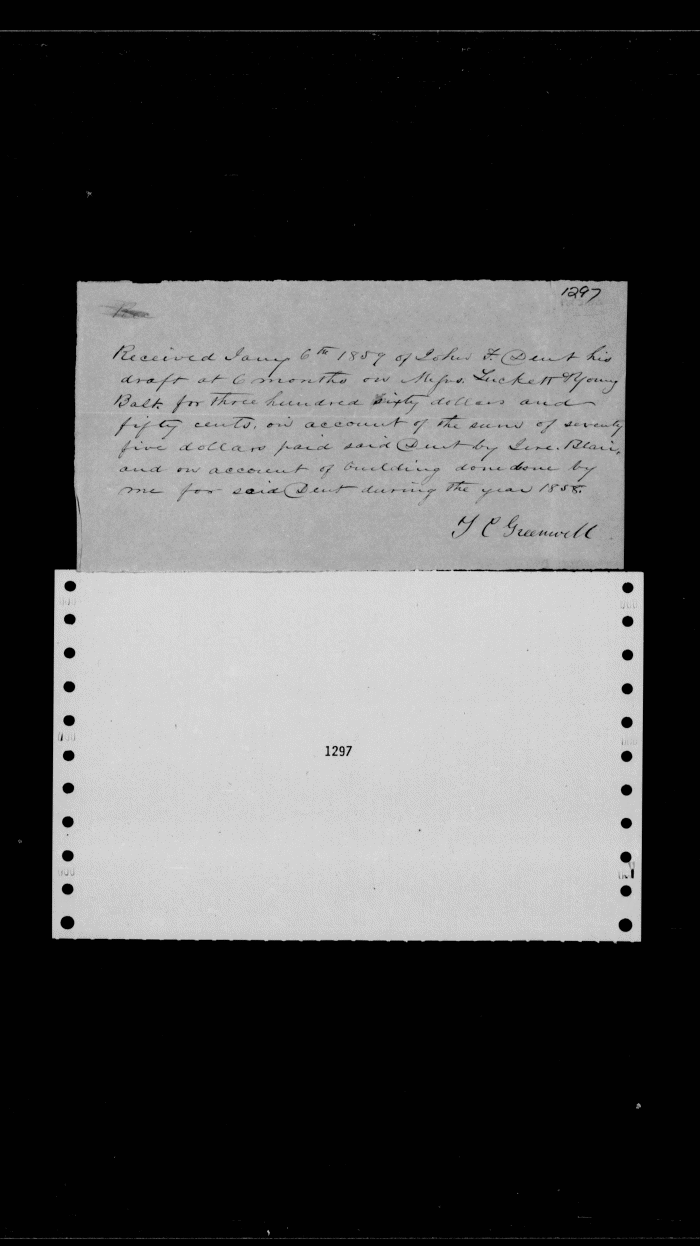 1297
Received Jany 6th 1859 of John F. Dent his
draft at 6 months on Messrs. Luckett & Young
Balt. for three hundred sixty dollars and
fifty cents, on account of the sum of seventy
five dollars paid said Dent by Jere. Blair,
and on account of building done done by
me for said Dent during the year 1858.
T C Greenwell
1297